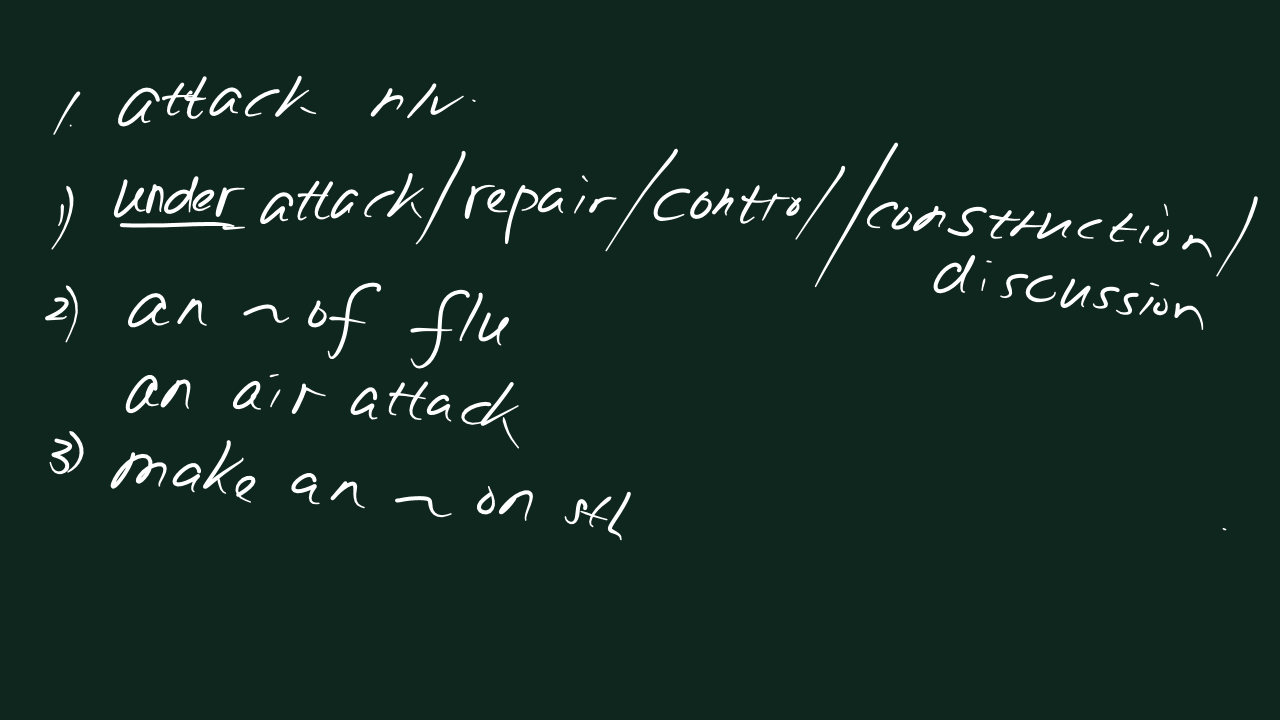 1. attack n/v.
1) under attack/repair/control/construction/
discussion
2) an ~ of flu
an air attack
3) make an ~ on sth